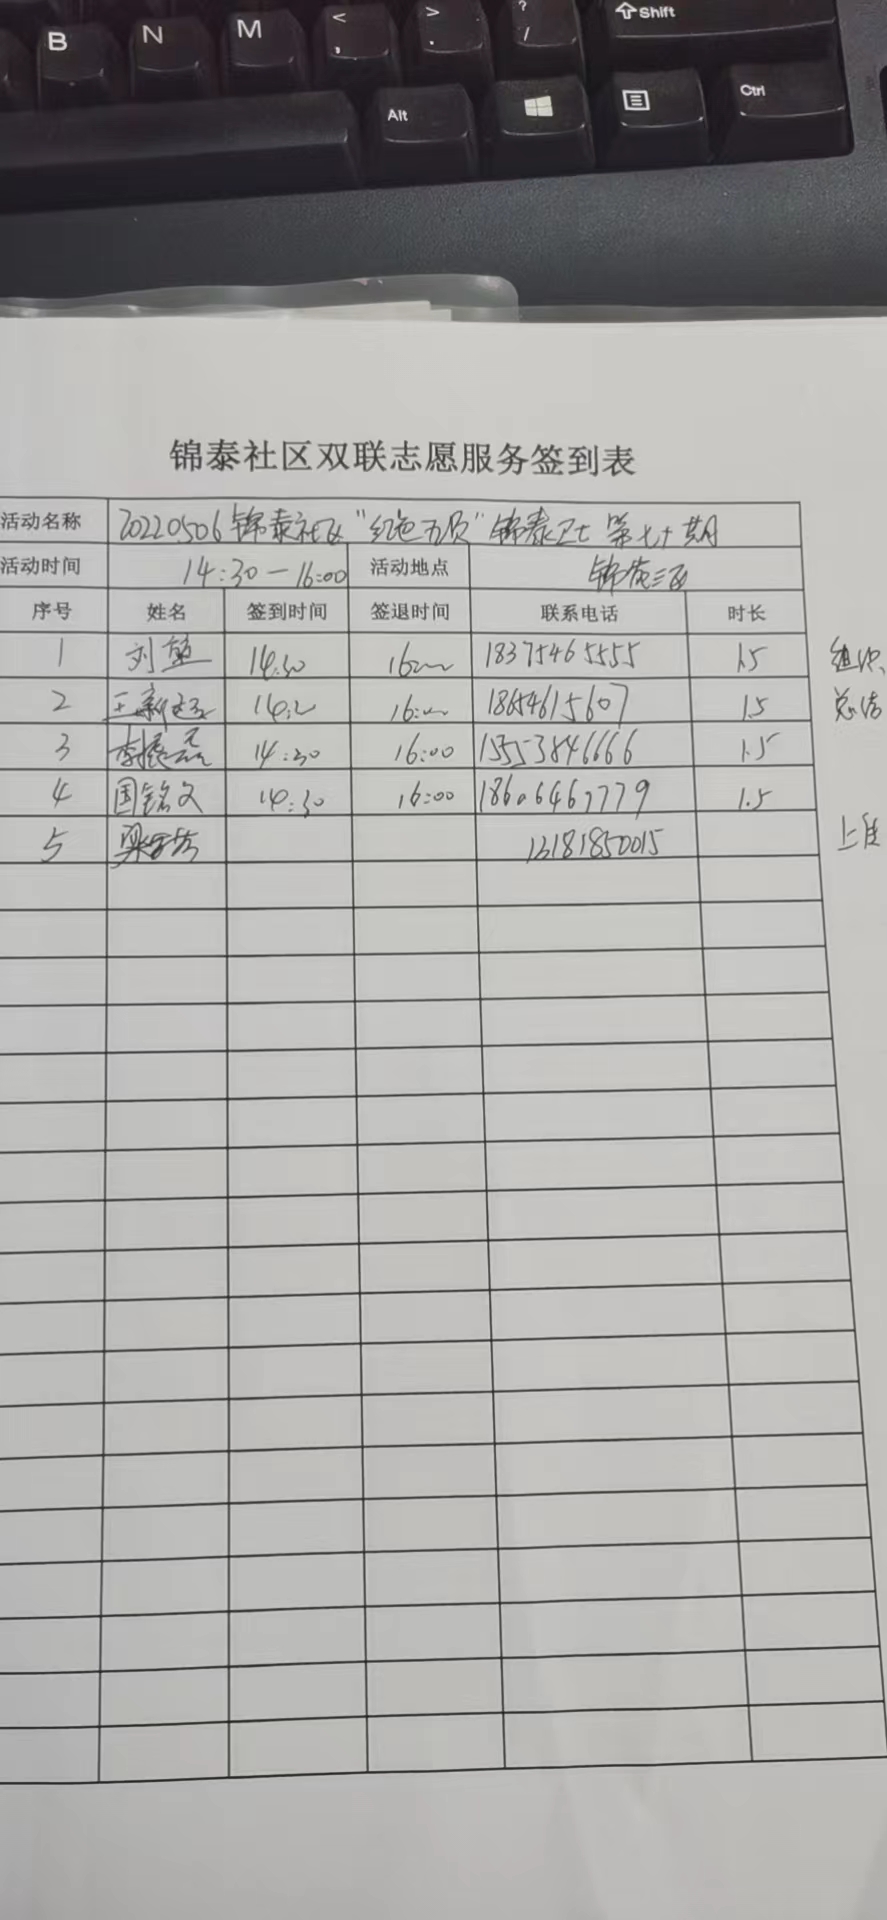 B N M < , > . ? / Shift
Alt Ctrl
锦泰社区双联志愿服务签到表
活动名称 20220506锦泰社区"红色五员"锦泰卫士 第七十期
活动时间 14:30-16:00 活动地点 锦苑三区
序号 姓名 签到时间 签退时间 联系电话 时长
1 刘 14:30 16:00 18375465555 1.5 组织、
2 王新 16:00 18654615607 1.5 总结
3 李振磊 14:30 16:00 15553846666 1.5
4 国铭文 14:30 16:00 18606467779 1.5
5 梁 13181850015 上传